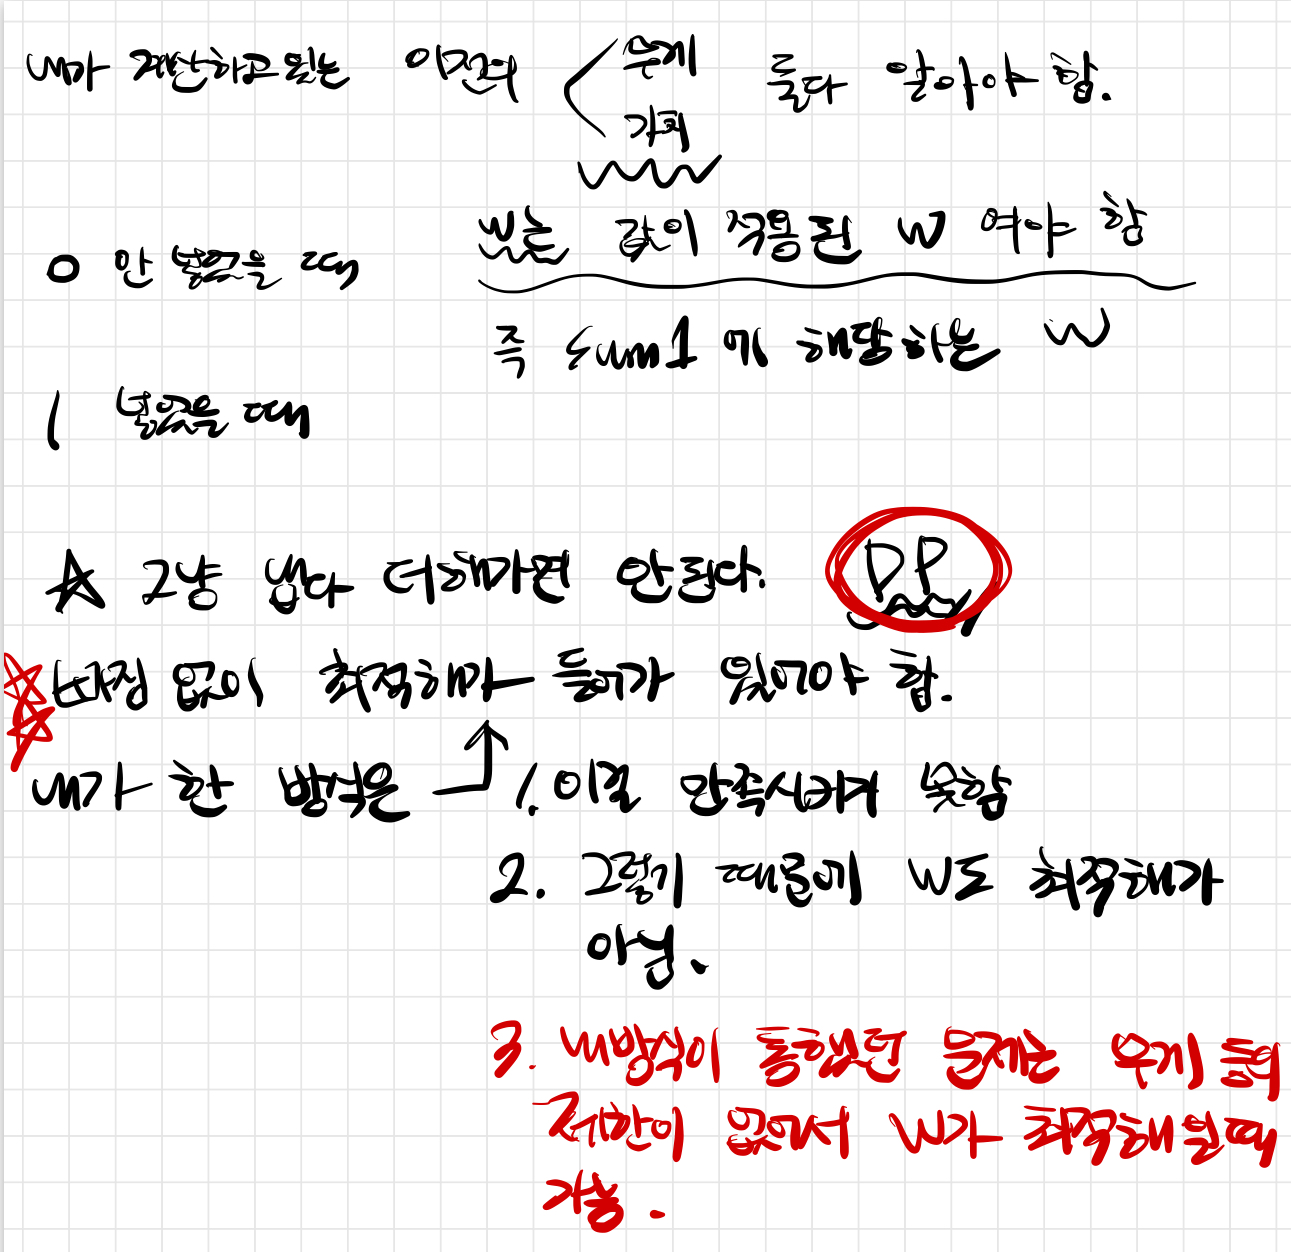 내가 계산하고 있는 이전의 무게 둘다 알아야 함.
가치
w는 값이 적용된 w 여야 함
0 안 넣었을 때
즉 sum1 에 해당하는 w
1 넣었을 때
☆ 그냥 냅다 더해가면 안된다. DP
☆ 빠짐 없이 최적해만 들어가 있어야 함.
내가 한 방식은 1. 이걸 만족시키지 못함
2. 그렇기 때문에 w도 최적해가
아님.
3. 내방식이 통했던 문제는 무게 등의
제한이 없어서 w가 최적해일때
가능.